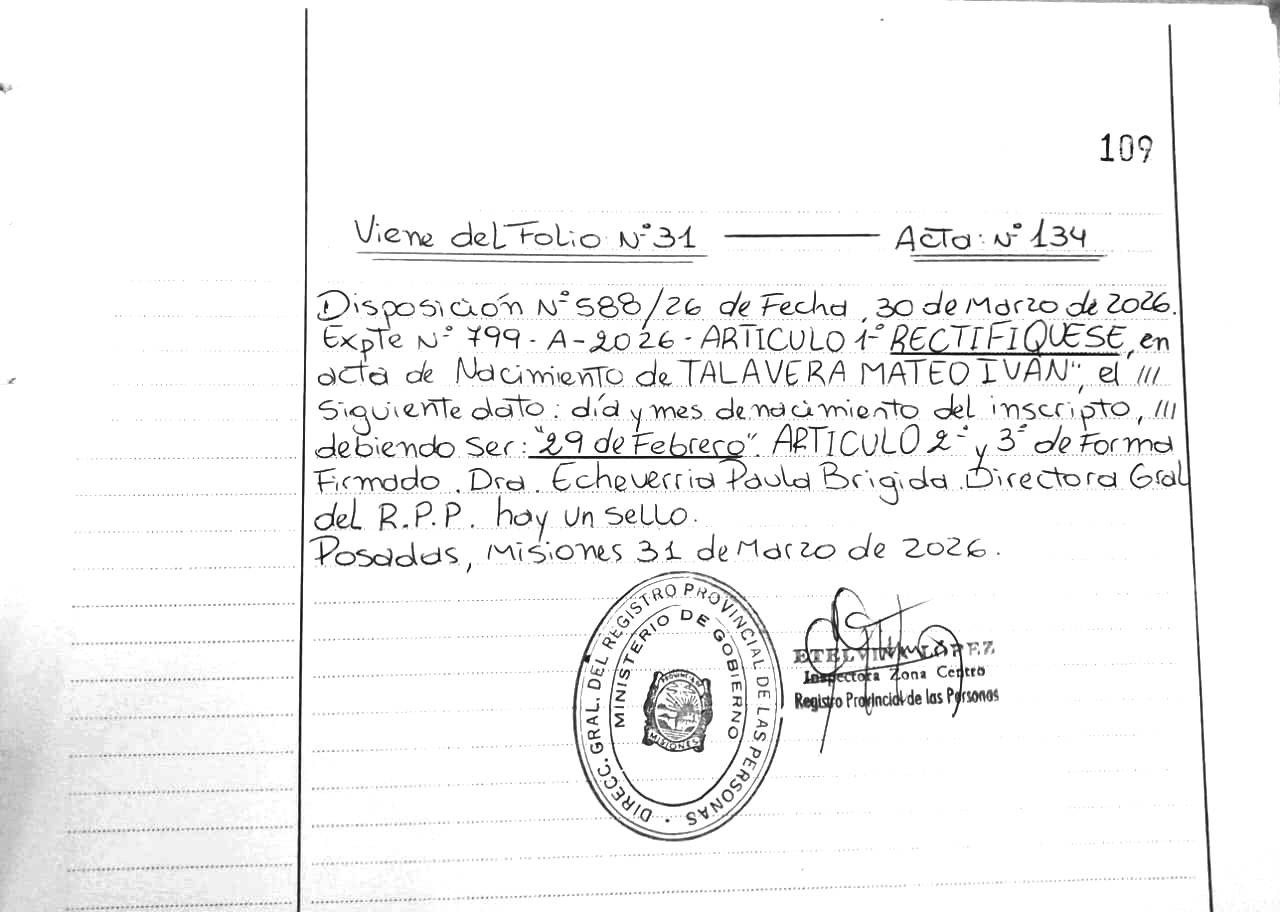 109
Viene del Folio N° 31 ——— Acta: N° 134
Disposición N° 588/26 de Fecha, 30 de Marzo de 2026.
Expte N° 799-A-2026-ARTICULO 1° RECTIFIQUESE, en
acta de Nacimiento de TALAVERA MATEO IVÁN", el ///
Siguiente dato: día y mes de nacimiento del inscripto, ///
debiendo ser: "29 de Febrero". ARTICULO 2° y 3° de Forma
Firmado. Dra. Echeverria Paula Brigida. Directora Gral
del R.P.P. hay un sello.
Posadas, Misiones 31 de Marzo de 2026.
DIRECC. GRAL. DEL REGISTRO PROVINCIAL DE LAS PERSONAS
MINISTERIO DE GOBIERNO
MISIONES
LOPEZ
Inspectora Zona Centro
Registro Provincial de las Personas